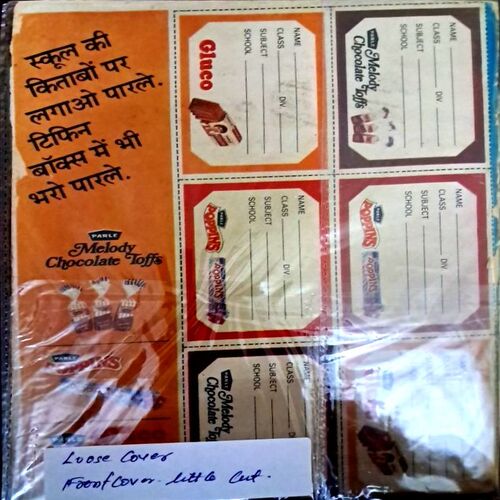 स्कूल की
किताबों पर
लगाओ पारले.
टिफिन
बॉक्स में भी
भरो पारले.
PARLE
Melody
Chocolate Toffs
PARLE
POPPINS
Gluco
NAME
CLASS DIV.
SUBJECT
SCHOOL
PARLE
Melody
Chocolate Toffs
NAME
CLASS DIV.
SUBJECT
SCHOOL
PARLE
POPPINS
POPPINS
NAME
CLASS DIV.
SUBJECT
SCHOOL
PARLE
POPPINS
POPPINS
NAME
CLASS DIV.
SUBJECT
SCHOOL
PARLE
Melody
Chocolate Toffs
NAME
CLASS
SUBJECT
SCHOOL
Loose Cover
little Cut.